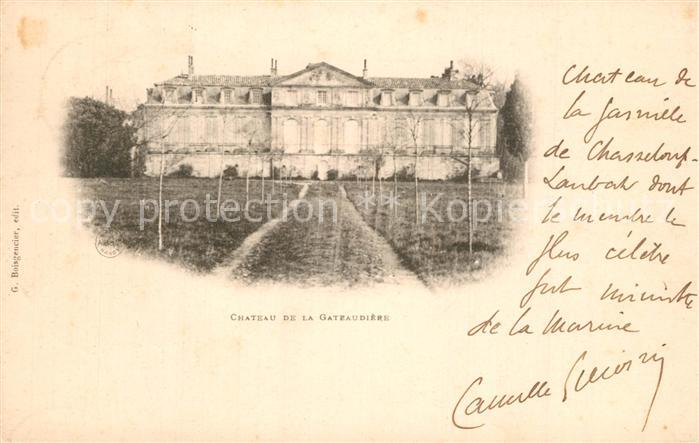 Chateau de
la famille
de Chasseloup-
Laubat dont
le membre le
plus célèbre
fut ministre
de la Marine
Camille
CHATEAU DE LA GATEAUDIÈRE
G. Boisgencier, edit.
copyright Kopierschutz